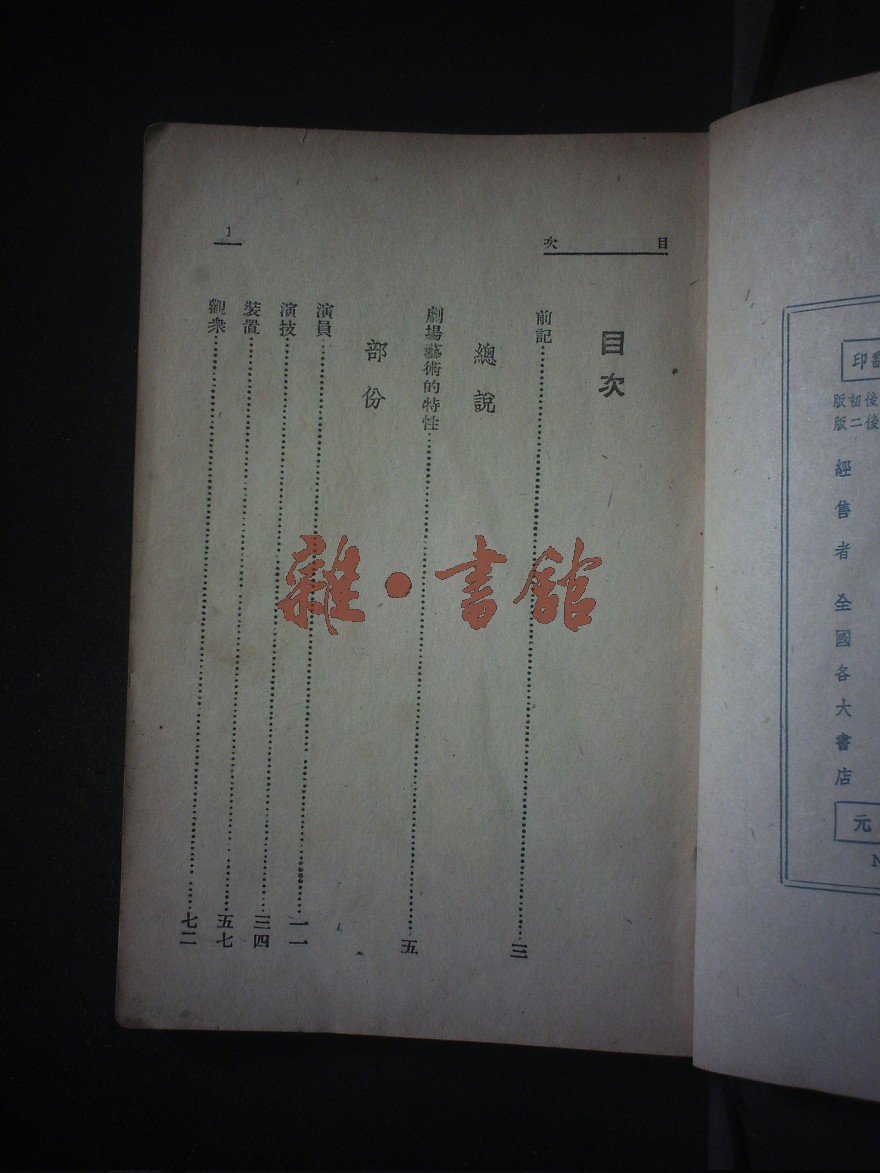 目次
1
目次
前記……三
總說
劇場藝術的特性……五
部份
演員……一一
演技……三四
裝置……五七
觀衆……七二
雜·書館
印書
版初後
版二後
經售者 全國各大書店
元
N